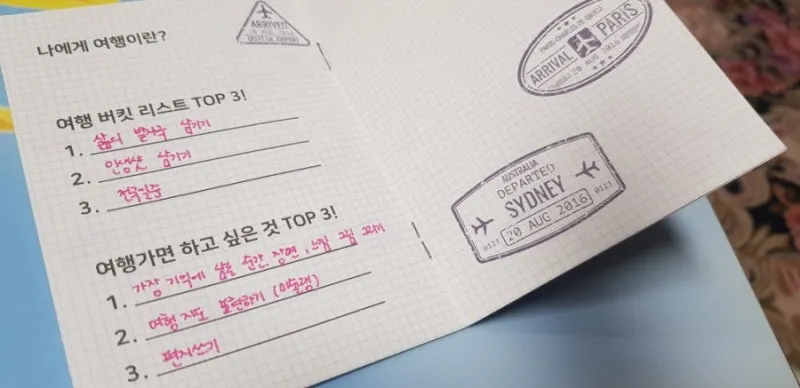 나에게 여행이란?
여행 버킷 리스트 TOP 3!
1. 삶의 발자국 남기기
2. 인생샷 남기기
3. 전국일주
여행가면 하고 싶은 것 TOP 3!
1. 가장 기억에 남을 순간, 장면, 느낌 그림
2. 여행 지도 표현하기
3. 편지쓰기
ARRIVED
PARIS-CHARLES-DE-GAULLE
ARRIVAL PARIS
20 AUG 2016
AUSTRALIA
DEPARTED
SYDNEY
20 AUG 2016
0123
0123